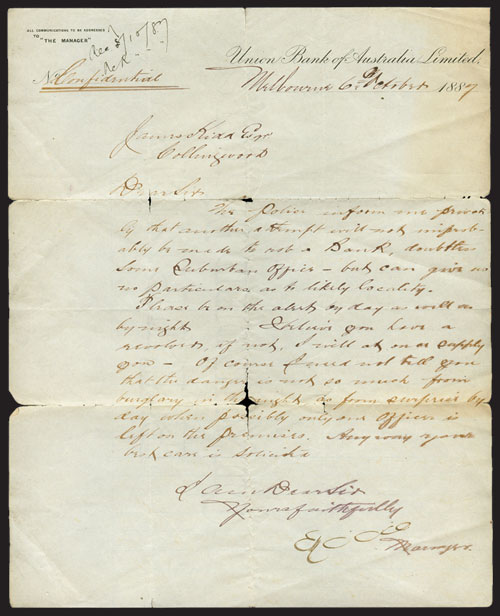 ALL COMMUNICATIONS TO BE ADDRESSED
TO "THE MANAGER"
Rec 8/10/87
Union Bank of Australia Limited,
No Confidential
Melbourne 6th October 1887
James Kidd Esqr
Collingwood
Dear Sir
The Police inform me private
ly that another attempt will not improb
ably be made to rob a Bank, doubtless
some Suburban Office - but can give us
no particulars as to likely locality.
Please be on the alert by day as well as
by night. I believe you have a
revolver, if not, I will at once supply
you - Of course I need not tell you
that the danger is not so much from
burglary in the night as from surprise by
day when possibly only one Officer is
left on the premises. Anyway your
best care is solicited
I am Dear Sir
Yours faithfully
Manager.